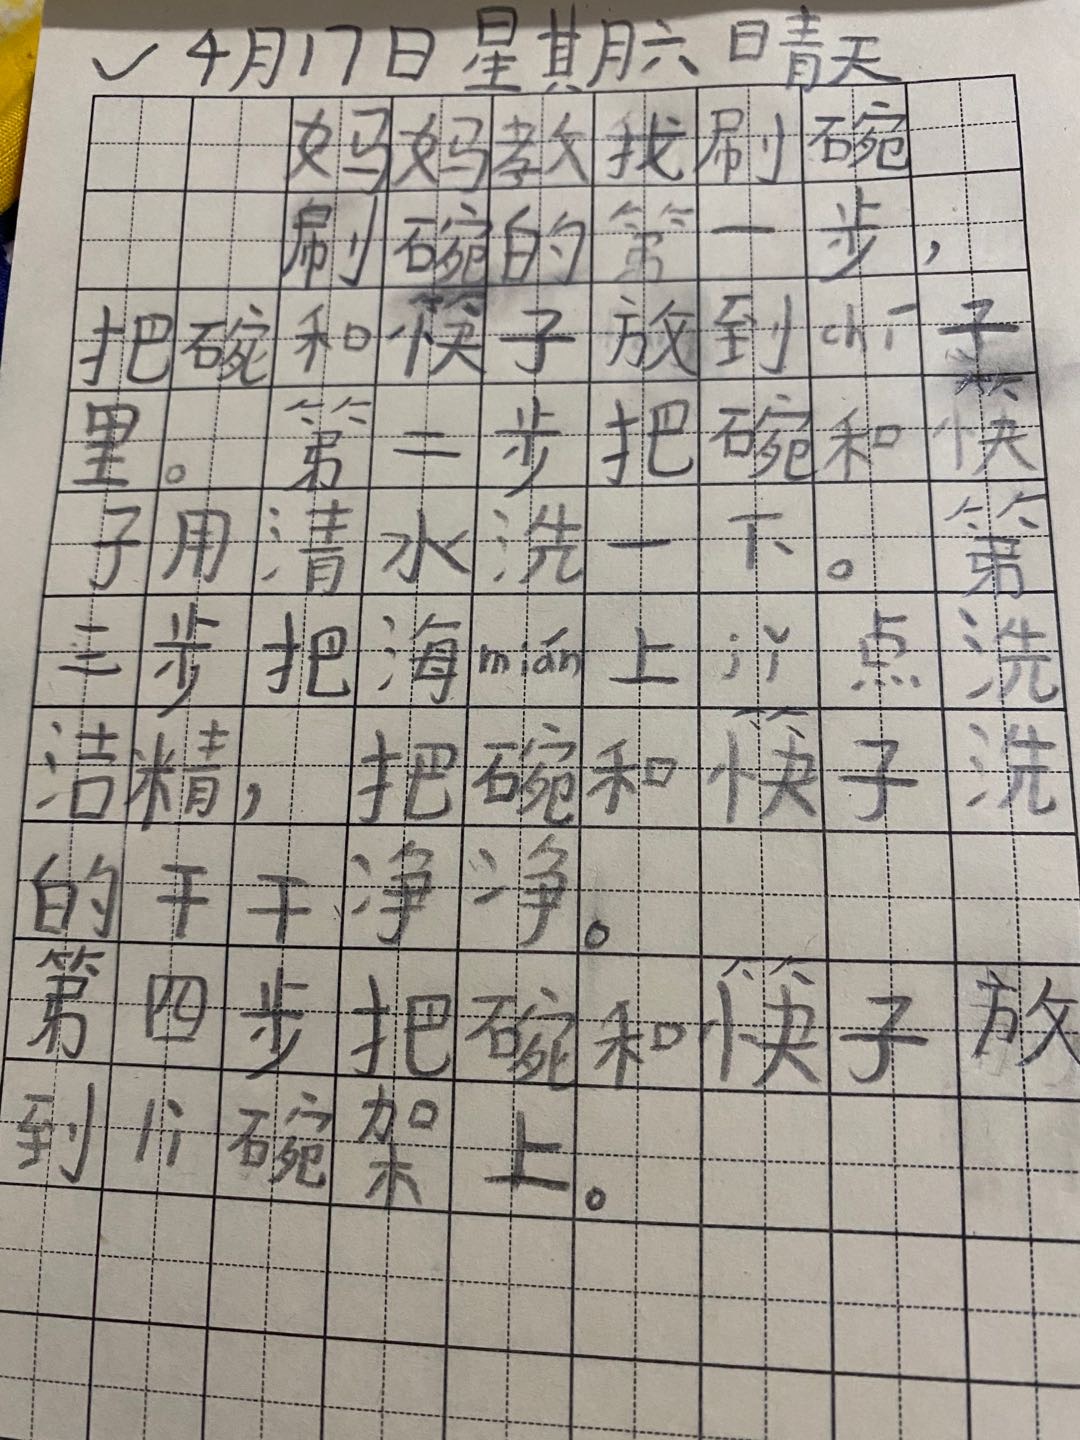 ✓4月17日 星期六 晴天
妈妈教我刷碗
刷碗的第一步，
把碗和筷子放到chí子
里。第二步把碗和筷
子用清水洗一下。第
三步把海mián上jǐ点洗
洁精，把碗和筷子洗
的干干净净。
第四步把碗和筷子放
到lì碗架上。